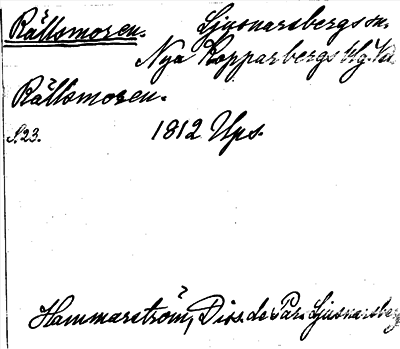 Rällsmoren. Ljusnarsbergs sn.
Nya Kopparbergs hg.
Rällsmoren.
S. 23. 1812 Ups.
Hammarström, Diss. de Par. Ljusnarsberg